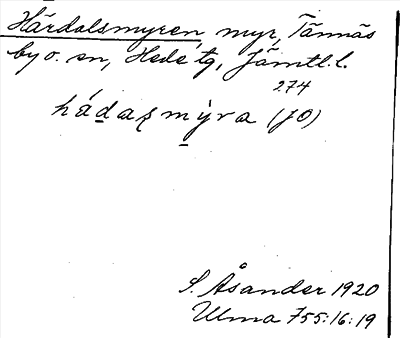 Härdalsmyren, myr, Tännäs
by o. sn, Hede tg, Jämtl. l.
274
hádaʂmýra (JÖ)
S. Åsander 1920
Ulma 755:16:19